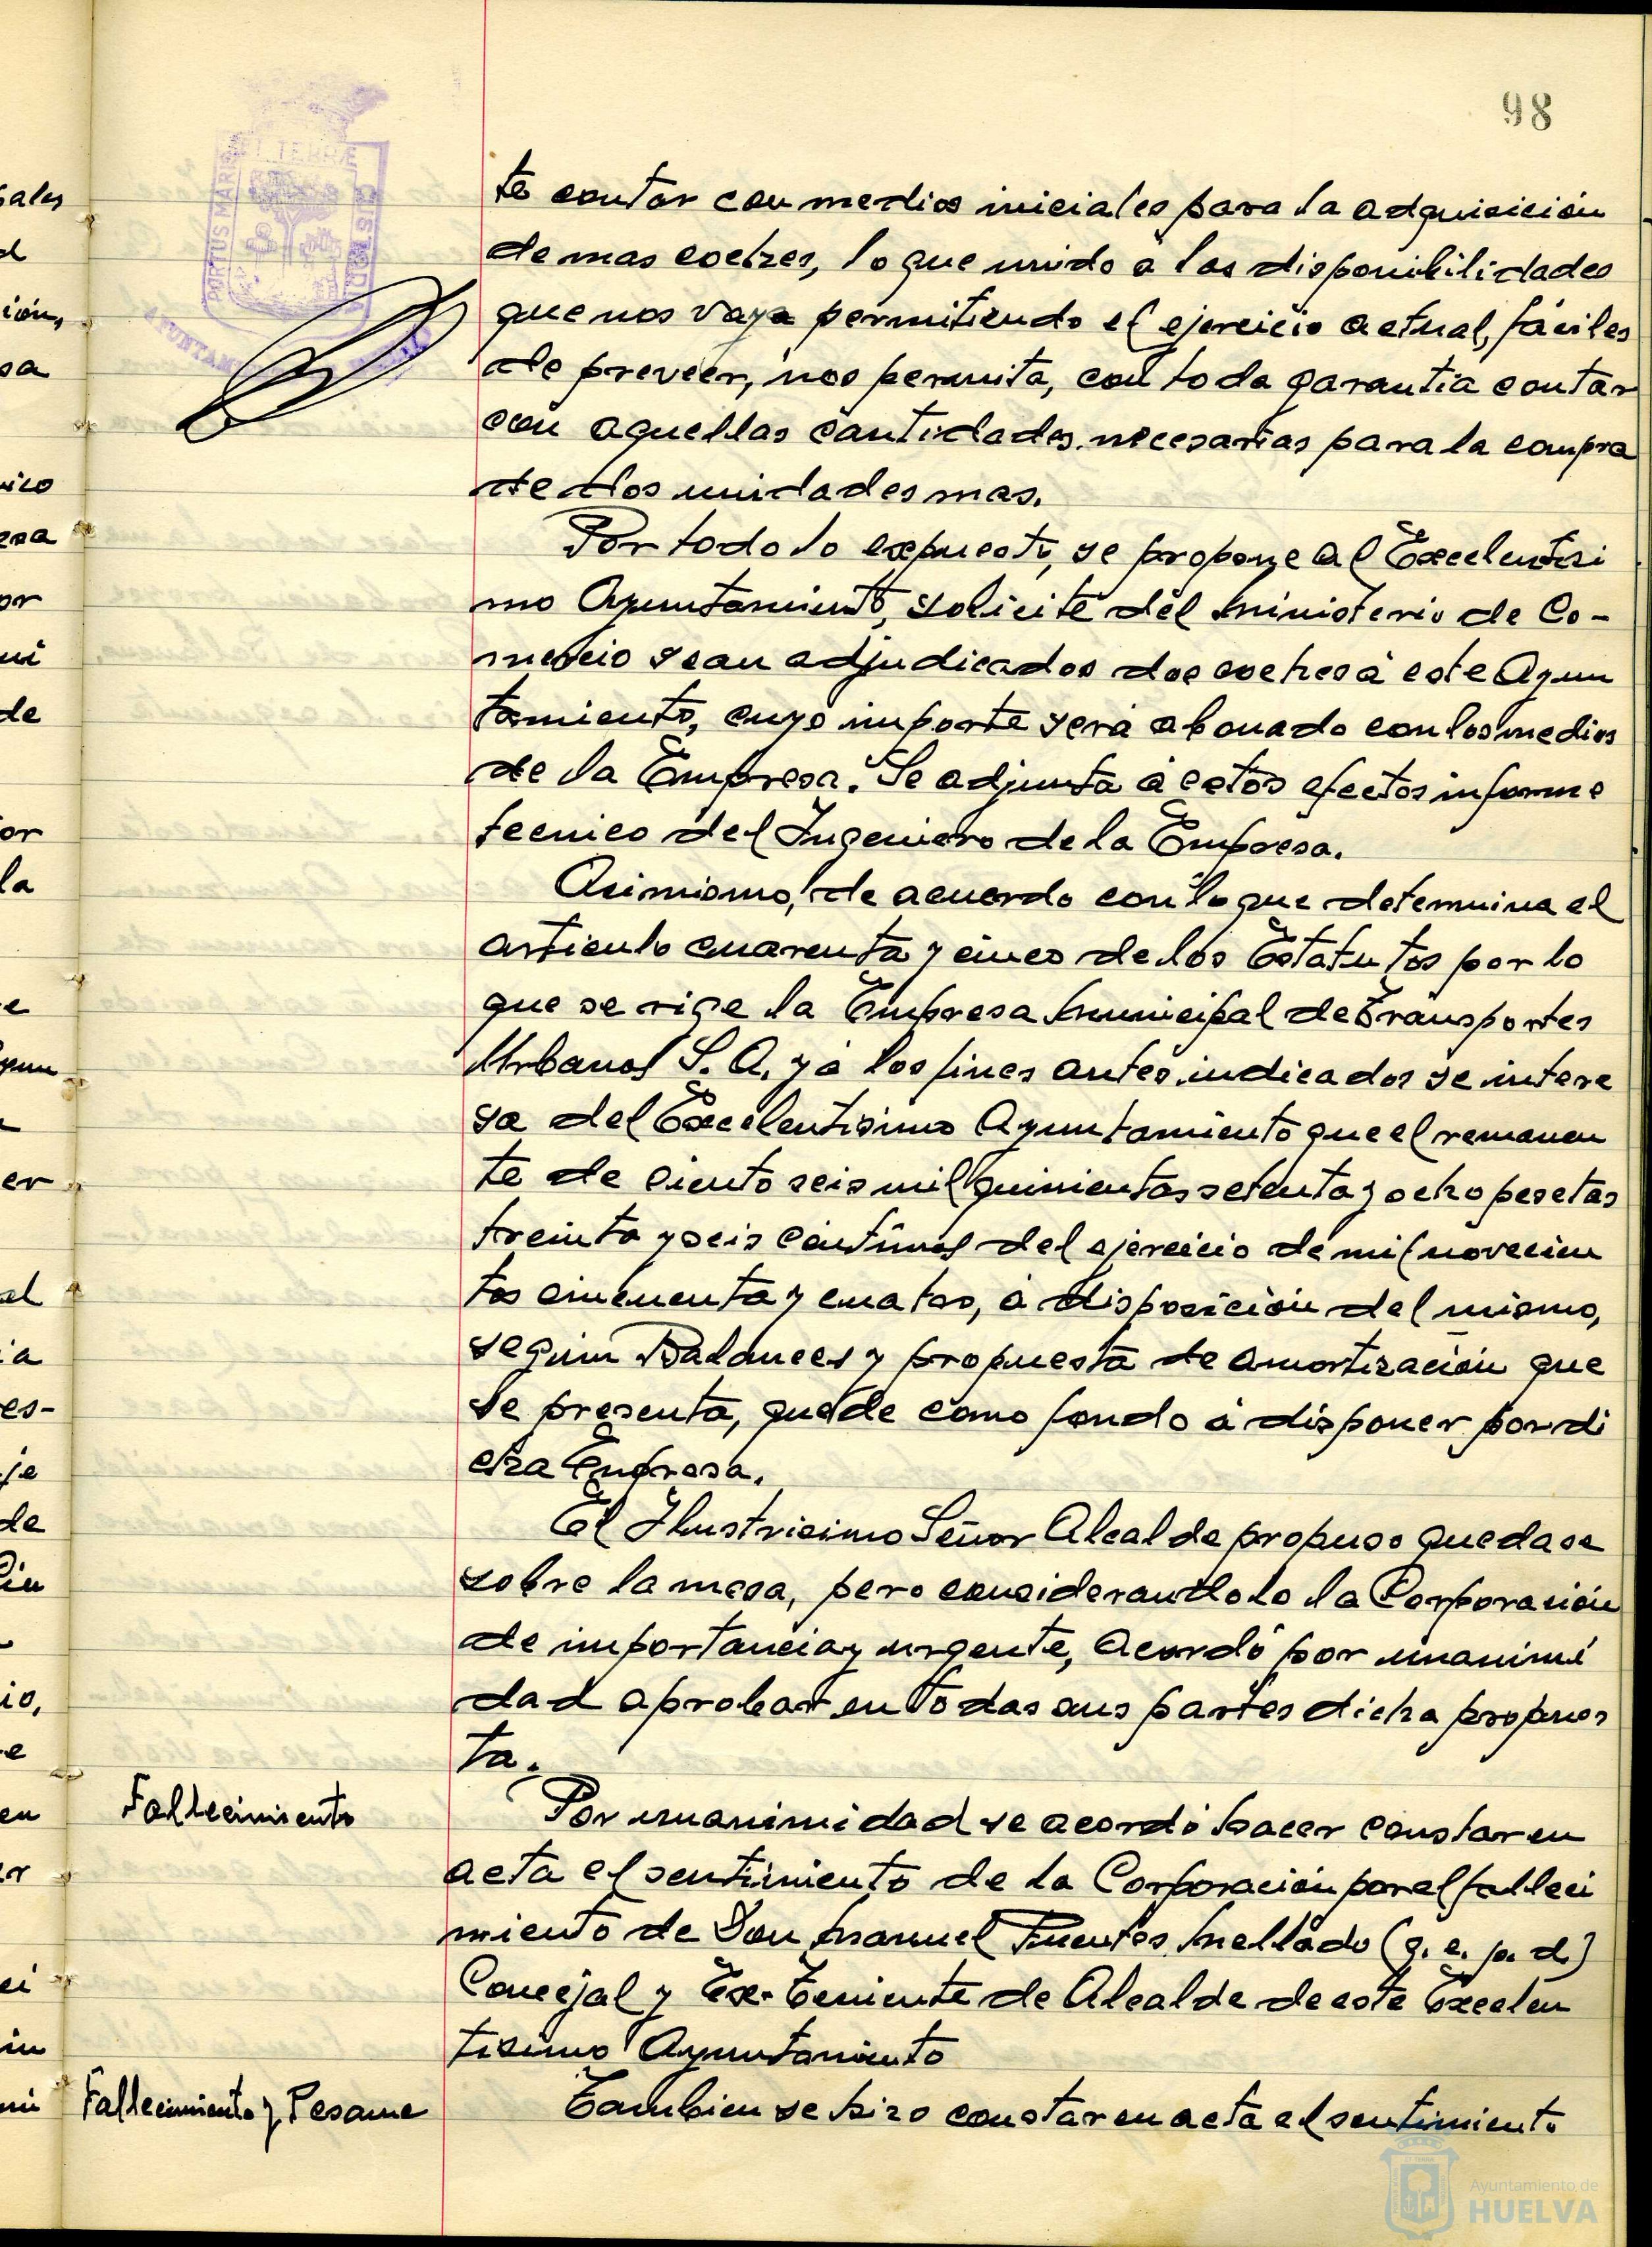 98
te contar con medios iniciales para la adquisición
de mas coches, lo que unido a las disponibilidades
que nos vaya permitiendo el ejercicio actual, fáciles
de preveer, nos permita, con toda garantia contar
con aquellas cantidades necesarias para la compra
de dos unidades mas.
Por todo lo expuesto, se propone al Excelentísi
mo Ayuntamiento, solicite del Ministerio de Co-
mercio sean adjudicados dos coches á este Ayun
tamiento, cuyo importe será abonado con los medios
de la Empresa. Se adjunta á estos efectos informe
tecnico del Ingeniero de la Empresa.
Asimismo, de acuerdo con lo que determina el
articulo cuarenta y cinco de los Estatutos por lo
que se rige la Empresa Municipal de Transportes
Urbanos S. A. y á los fines antes indicados se intere
sa del Excelentisimo Ayuntamiento que el remanen
te de ciento seis mil quinientas setenta y ocho pesetas
treinta y seis céntimos del ejercicio de mil novecien
tos cincuenta y cuatro, á disposición del mismo,
según Balances y propuesta de amortización que
se presenta, quede como fondo á disponer por di
cha Empresa.
El Ilustrisimo Señor Alcalde propuso quedase
sobre la mesa, pero considerandolo la Corporación
de importancia y urgente, acordó por unanimi
dad aprobar en todas sus partes dicha propues
ta.
Fallecimiento
Por unanimidad se acordó hacer constar en
acta el sentimiento de la Corporación por el falleci
miento de Don Manuel Fuentes Mellado (q. e. p. d.)
Concejal y Ex-Teniente de Alcalde de este Excelen
tisimo Ayuntamiento
Fallecimiento y Pesame
Tambien se hizo constar en acta el sentimiento
PORTUS MARIS ET TERRÆ CUSTODIA
Ayuntamiento de
HUELVA